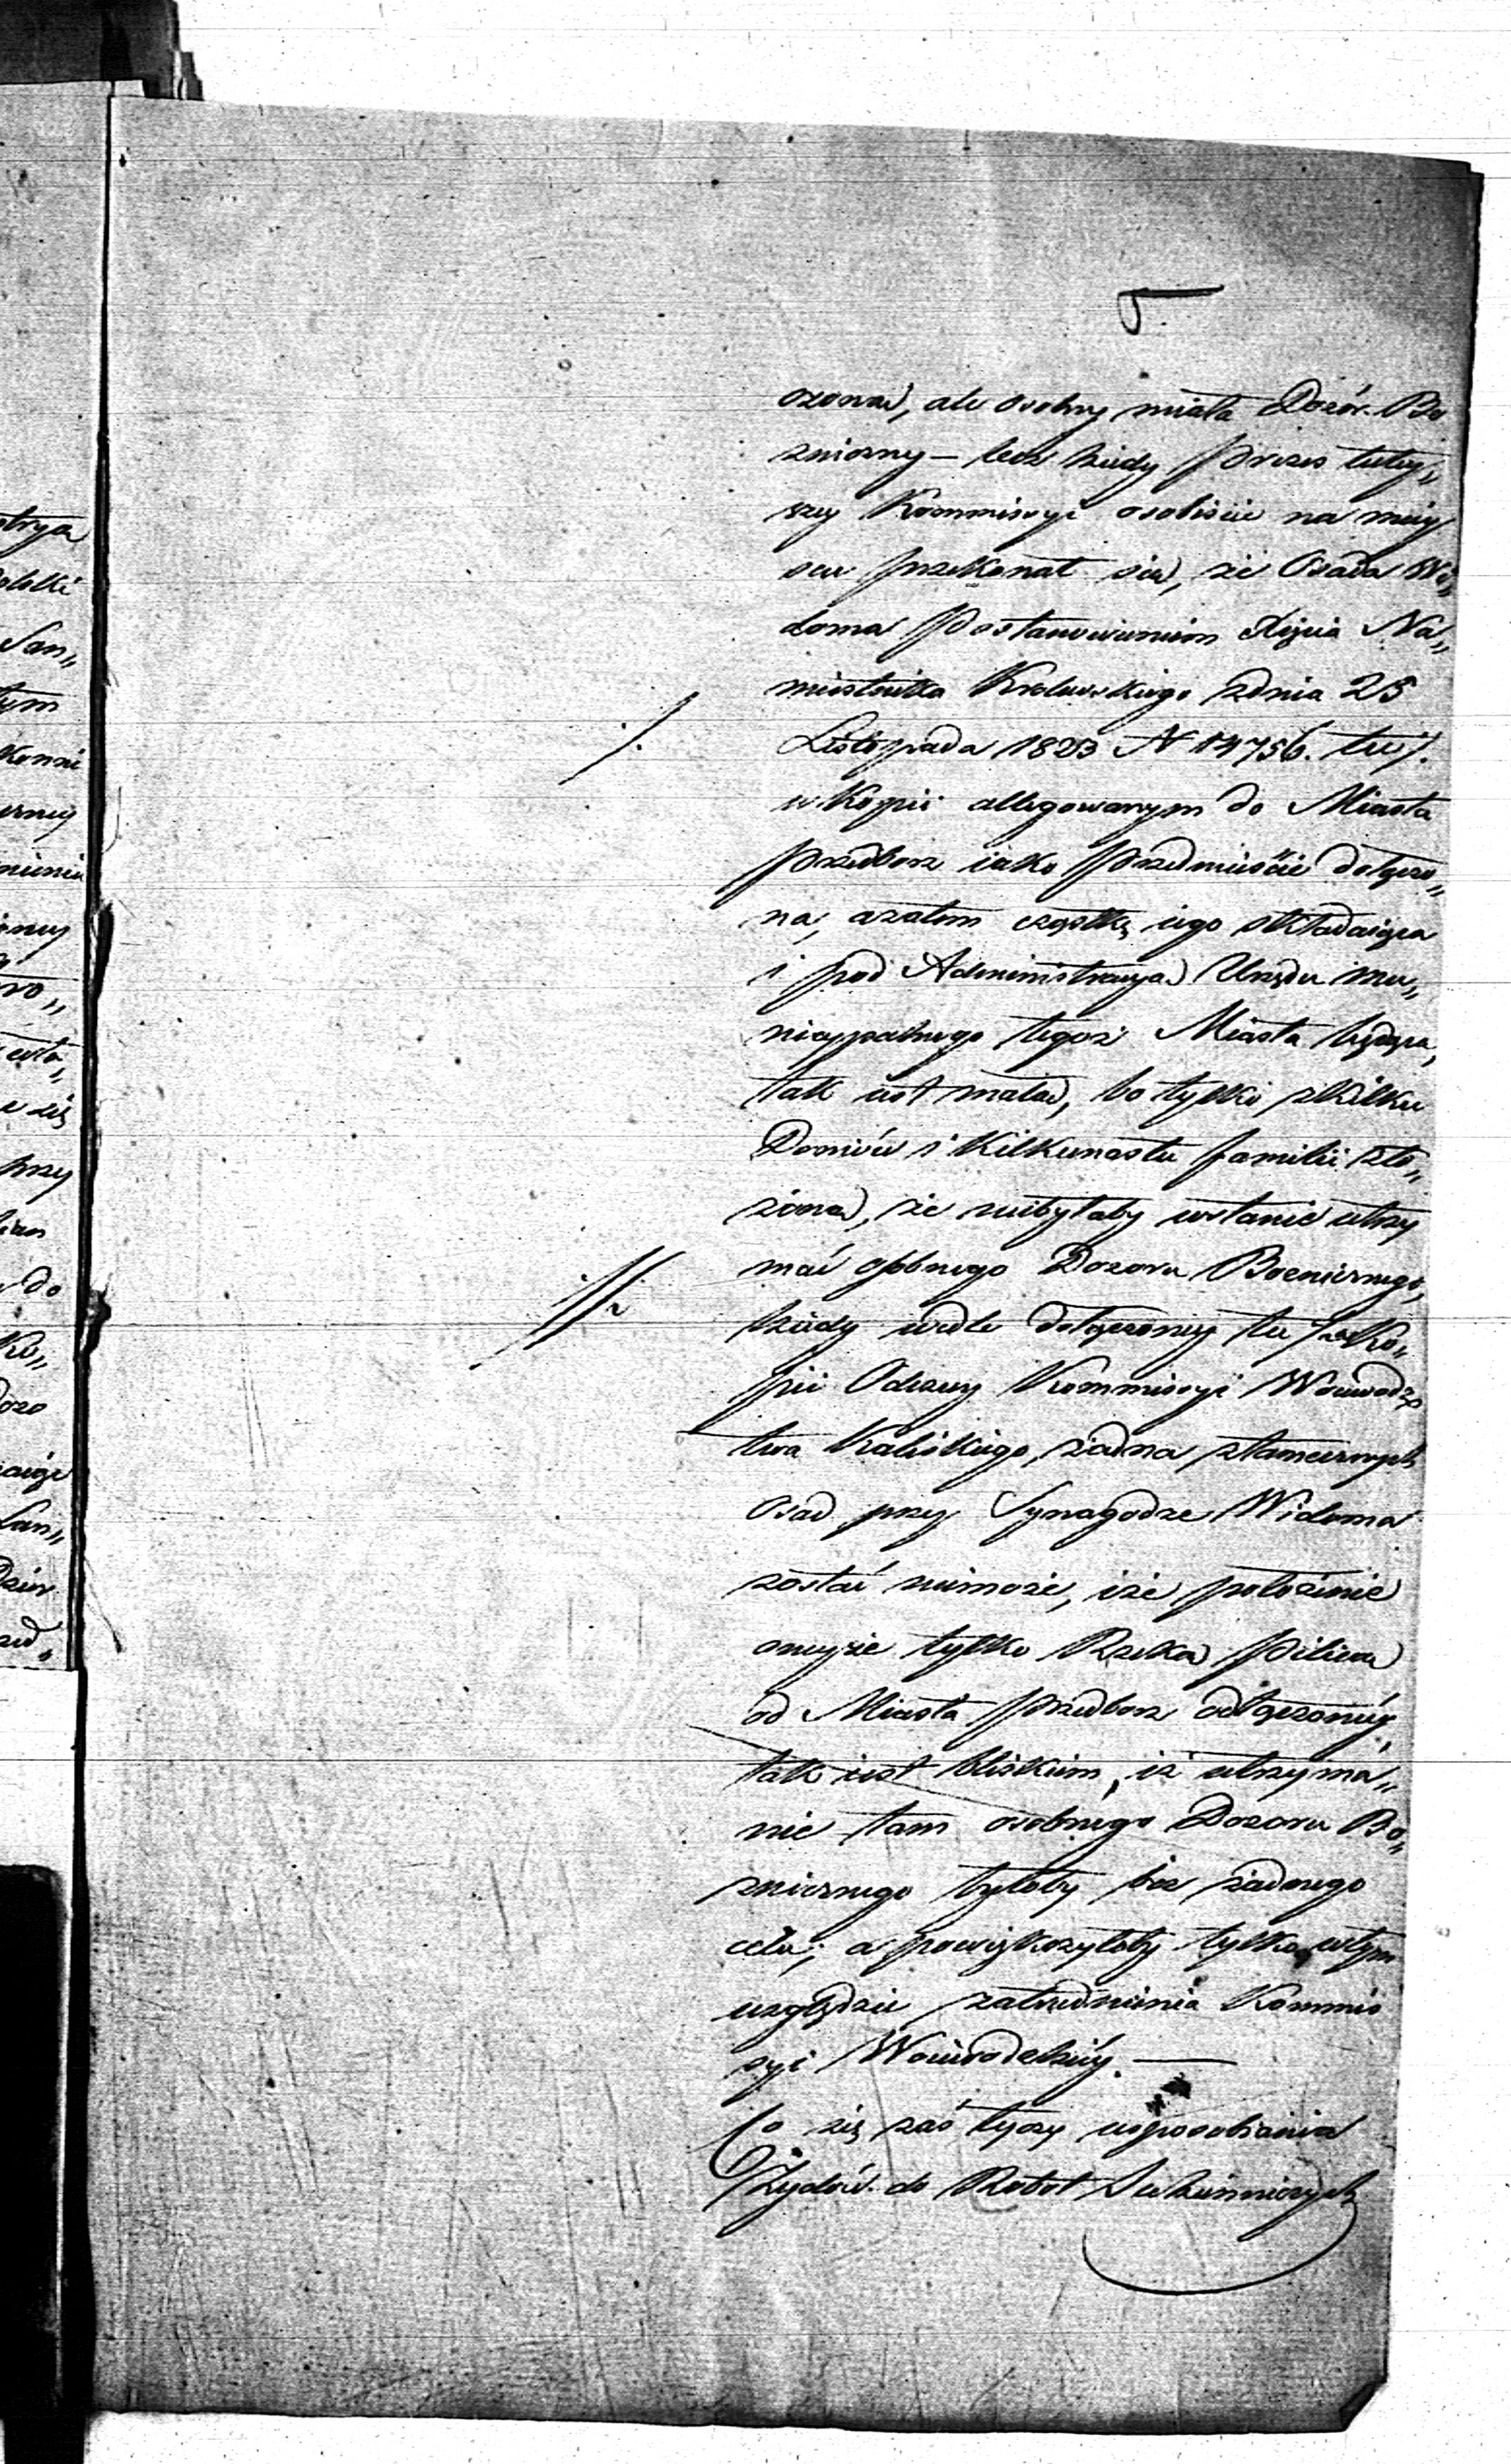 5
czona, ale osobny miała Dozór Bo
zniczny — lecz kiedy Prezes tutey„
szey Kommissyi osobiście na miey
scu przekonał się, że Osada Wi„
doma Postanowieniem Xięcia Na„
miestnika Krolewskiego z dnia 25
Listopada 1823 N 14756. tu /.
/.
w Kopii allegowanym do Miasta
Przedborz iako Przedmieście dołączo„
na, a zatem cząstkę iego składaiąca
i pod Administracyą Urzędu mu„
nicypalnego tegoż Miasta będąca,
tak iest mała, bo tylko z kilku
Domów i kilkunastu familii zło„
żona, że niebyłaby w stanie utrzy
mać osobnego Dozoru Bozniczego,
//.
kiedy wedle dołączoney tu // w Ko„
pii Odezwy Kommissyi Woiewodz
twa Kaliskiego, żadna z tamecznych
Osad przy Synagodze Widoma
zostać niemoże, i że położenie
oneyże tylko Rzeką Pilicą
od Miasta Przedborz odłączoney,
tak iest bliskim, iż utrzyma„
nie tam osobnego Dozoru Bo„
zniczego byłoby bez żadnego
celu; a powiększyłoby tylko w tym
względzie zatrudnienia Kommis
syi Woiewodzkiey. —
Co się zaś tyczy usposobienia
Żydów do Robot Sukienniczych